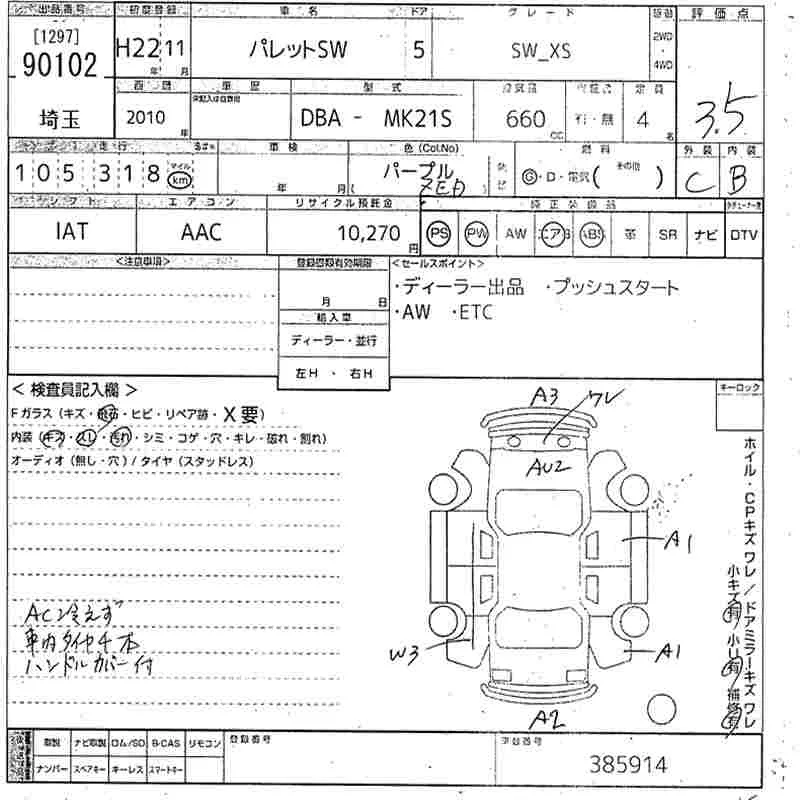 出品番号 初度登録 車名 ドア グレード 駆動 評価点
[1297]
90102 H22 11 パレットSW 5 SW_XS 2WD・4WD 3.5
年 月
埼玉 2010 年 車歴 型式 DBA - MK21S 排気量 660 cc 有・無 定員 4 名
走行 車検 色(Col.No) 燃料 外装 内装
105,318 マイル km 年 月 パープル ( ZED ) G・D・電気( その他 ) C B
シフト エアコン リサイクル預託金 純正装備品
IAT AAC 10,270 円 PS PW AW エアB ABS 革 SR ナビ DTV
<注意事項> 登録書類有効期限 <セールスポイント>
月 日 ・ディーラー出品 ・プッシュスタート
輸入車 ・AW ・ETC
ディーラー・並行
左H ・ 右H
<検査員記入欄> キーロック
Fガラス(キズ・飛石・ヒビ・リペア跡・X要)
内装(キズ・スレ・汚れ・シミ・コゲ・穴・キレ・破れ・割れ)
オーディオ(無し・穴)/タイヤ(スタッドレス)
A3 ワレ
AU2
A1
W3 A1
A2
AC冷えず
車内タイヤ4本
ハンドルカバー付
ホイル・CPキズ ワレ/ドアミラーキズ ワレ
小キズ有 小U有 補修有
取説 ナビ取説 ロム/SD B-CAS リモコン 登録番号 車台番号
ナンバー スペアキー キーレス スマートキー 385914